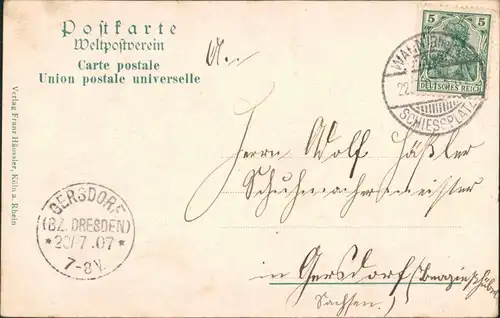 Postkarte
Weltpostverein
Carte postale
Union postale universelle
5 5
DEUTSCHES REICH
22.
SCHIESSPLATZ
An
Herrn Wolf
Schuhmachermeister
in Gersdorf
Sachsen.
GERSDORF
(BZ. DRESDEN)
*23/7.07*
7-8V.
Verlag Franz Häussler, Köln a. Rhein